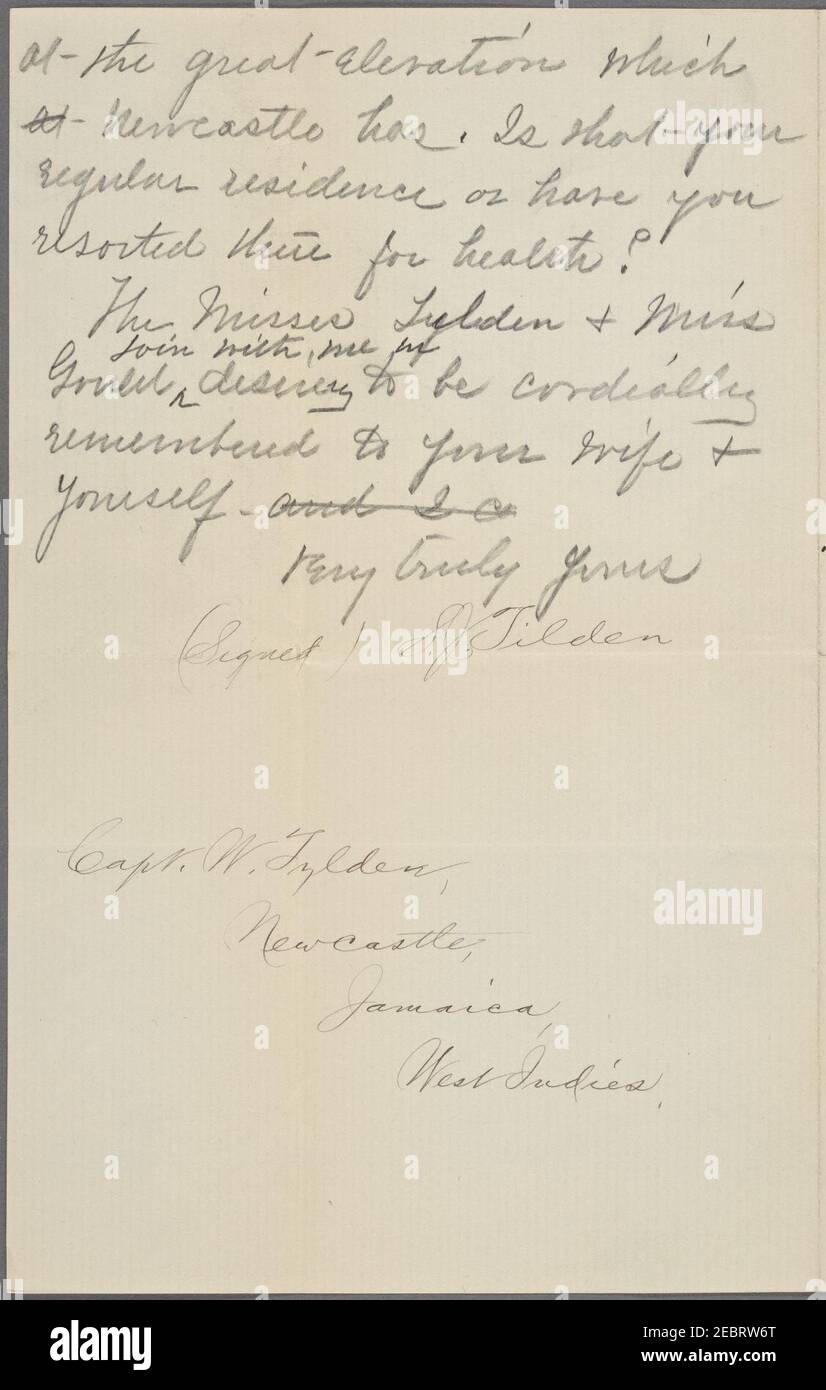 at the great elevation which
at Newcastle has. Is that your
regular residence or have you
resorted there for health?
The Misses Tylden + Miss
join with me in
Gould desiring to be cordially
remembered to your wife +
yourself - and I c
Very truly yours
(Signed) S. J. Tilden
Capt. W. Tylden,
Newcastle,
Jamaica,
West Indies,
alamy
Image ID: 2EBRW6T
www.alamy.com